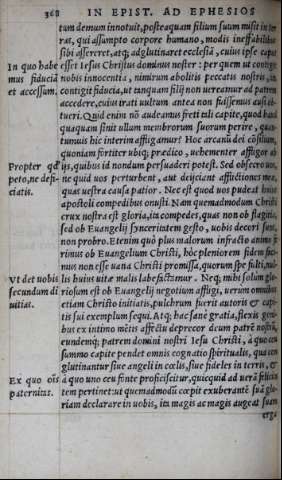 368 IN EPIST. AD EPHESIOS
tum demum innotuit, posteaquam filium suum misit in ter
ras, qui assumpto corpore humano, modis ineffabilibus
sibi assereret, atq; adglutinaret ecclesiā, cuius ipse caput
In quo habe esset Iesus Christus dominus noster: per quem ut contigit
mus fiduciā nobis innocentia, nimirum abolitis peccatis nostris, ita
et accessum. contigit fiducia, ut tanquam filij non uereamur ad patrem
accedere, cuius irati uultum antea non fuissemus ausi in
tueri. Quid enim nō audeamus freti tali capite, quod haud
quaquam sinit ullum membrorum suorum perire, quan
tumuis hic interim affligamur? Hoc arcani dei cōsilium,
quoniam fortiter ubiq; prædico, uehementer affligor ab
Propter qđ ijs, quibus id nondum persuaderi potest. Sed obsecro uos,
peto, ne defi- ne quid uos perturbent, aut deijciant afflictiones meæ,
ciatis. quas uestra causa patior. Nec est quod uos pudeat huius
apostoli compedibus onusti. Nam quemadmodum Christi
crux nostra est gloria, ita compedes, quas non ob flagitia,
sed ob Euangelij synceritatem gesto, uobis decori sunt,
non probro. Etenim quo plus malorum infracto animo fe
rimus ob Euangelium Christi, hoc pleniorem fidem faci
mus non esse uana Christi promissa, quorum spe fulti, nul-
Vt det uobis lis huius uitæ malis labefactimur. Neq; mihi solum glo
secundum di riosum est ob Euangelij negotium affligi, uerum omnibus
uitias. etiam Christo initiatis, pulchrum fuerit autoris & capi-
tis sui exemplum sequi. Atq; hac sanè gratia, flexis geni
bus ex intimo mētis affectu deprecor deum patrē nostrū,
eundemq; patrem domini nostri Iesu Christi, à quo ceu
summo capite pendet omnis cognatio spiritualis, qua con
glutinantur siue angeli in cœlis, siue fideles in terris, &
Ex quo oīs à quo uno ceu fonte proficiscitur, quicquid ad uerā felicita
paternitas. tem pertinet: ut quemadmodū cœpit exuberantē suā glo-
riam declarare in uobis, ita magis ac magis augeat suam
erga